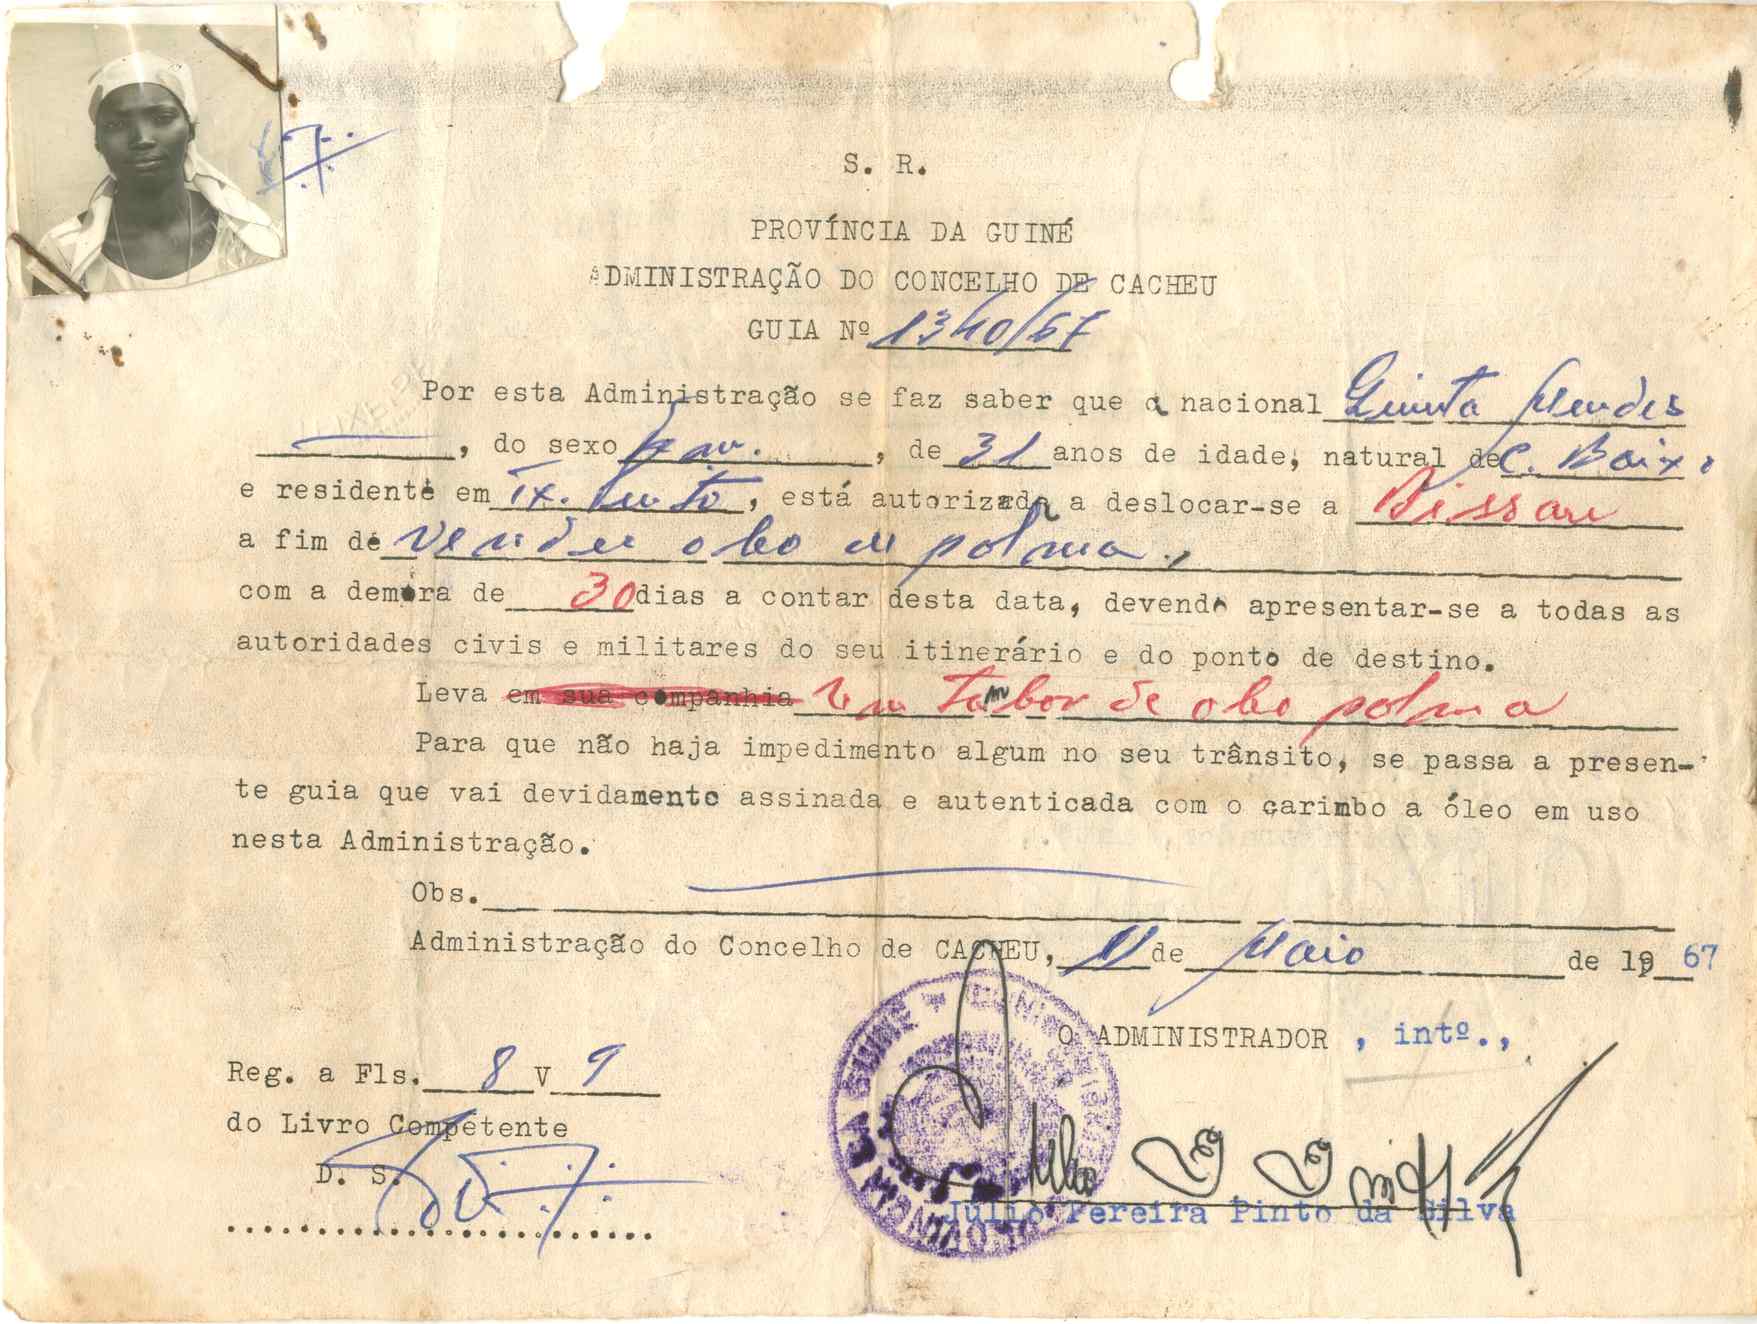 S. R.
PROVÍNCIA DA GUINÉ
ADMINISTRAÇÃO DO CONCELHO DE CACHEU
GUIA Nº 1340/67
Por esta Administração se faz saber que a nacional Quinta Mendes
, do sexo fem. , de 31 anos de idade, natural de C. Baixo
e residente em Tx. Pinto, está autorizada a deslocar-se a Bissau
a fim de vender oleo de palma.,
com a demora de 30 dias a contar desta data, devendo apresentar-se a todas as
autoridades civis e militares do seu itinerário e do ponto de destino.
Leva em sua companhia Um tambor de oleo palma
Para que não haja impedimento algum no seu trânsito, se passa a presen-
te guia que vai devidamente assinada e autenticada com o carimbo a óleo em uso
nesta Administração.
Obs.
Administração do Concelho de CACHEU, 11 de Maio de 19 67
O ADMINISTRADOR , intº.,
Reg. a Fls. 8 V 9
do Livro Competente
D. S.
Júlio Pereira Pinto da Silva